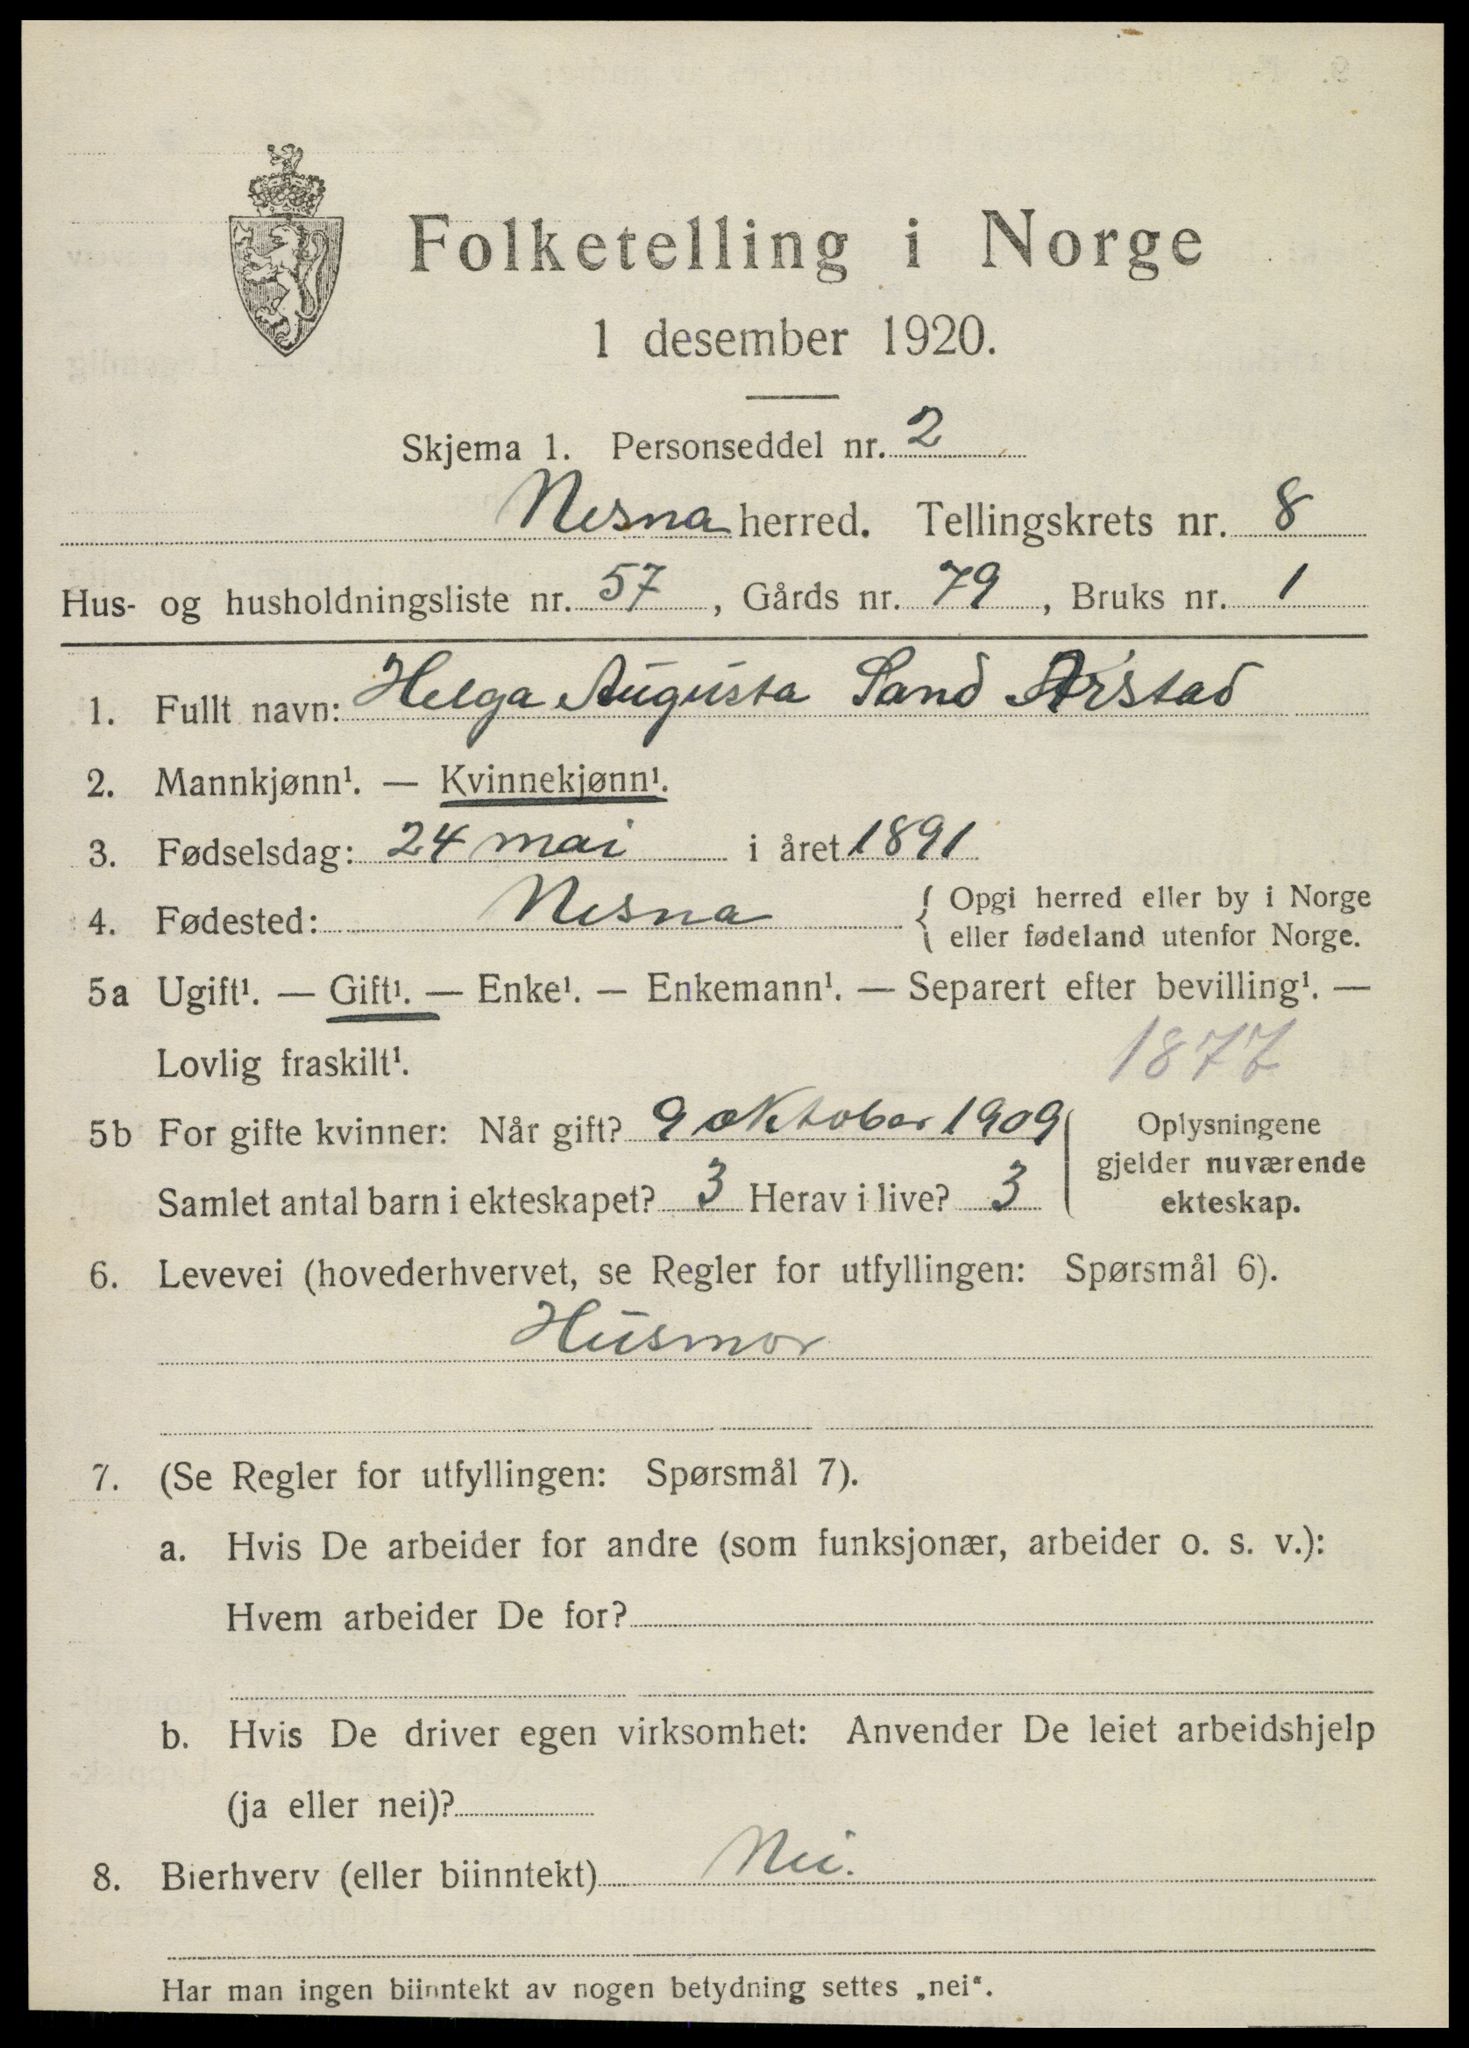 Folketelling i Norge
1 desember 1920.
Skjema 1. Personseddel nr. 2
Nesna herred. Tellingskrets nr. 8
Hus- og husholdningsliste nr. 57, Gårds nr. 79, Bruks nr. 1
1. Fullt navn: Helga Augusta Sand Årstad
2. Mannkjønn¹. — Kvinnekjønn¹.
3. Fødselsdag: 24 mai i året 1891
4. Fødested: Nesna { Opgi herred eller by i Norge
eller fødeland utenfor Norge.
5a Ugift¹. — Gift¹. — Enke¹. — Enkemann¹. — Separert efter bevilling¹. —
Lovlig fraskilt¹.
1877
5b For gifte kvinner: Når gift? 9 oktober 1909
Samlet antal barn i ekteskapet? 3 Herav i live? 3
Oplysningene
gjelder nuværende
ekteskap.
6. Levevei (hovederhvervet, se Regler for utfyllingen: Spørsmål 6).
Husmor
7. (Se Regler for utfyllingen: Spørsmål 7).
a. Hvis De arbeider for andre (som funksjonær, arbeider o. s. v.):
Hvem arbeider De for?
b. Hvis De driver egen virksomhet: Anvender De leiet arbeidshjelp
(ja eller nei)?
8. Bierhverv (eller biinntekt) Nei.
Har man ingen biinntekt av nogen betydning settes „nei“.